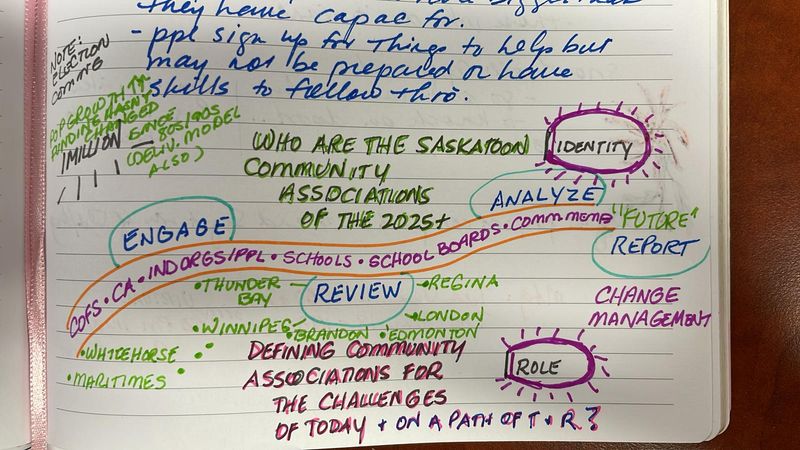 they have capac for.
- ppl sign up for things to help but
may not be prepared or have
skills to follow thro.
NOTE:
ELECTION
COMING
POP GROWTH ↑↑
FUNDING HASN'T
CHANGED
SINCE 80S/90S
(DELIV. MODEL
ALSO)
1 MILLION
WHO ARE THE SASKATOON
COMMUNITY
ASSOCIATIONS
OF THE 2025+
IDENTITY
ENGAGE
ANALYZE
COFS • CA • IND ORGS/PPL • SCHOOLS • SCHOOL BOARDS • COMM MEMB
"FUTURE"
REPORT
• THUNDER
BAY
REVIEW
• REGINA
• WINNIPEG
• BRANDON
• LONDON
• EDMONTON
• WHITEHORSE
• MARITIMES
CHANGE
MANAGEMENT
DEFINING COMMUNITY
ASSOCIATIONS FOR
THE CHALLENGES
OF TODAY + ON A PATH OF T + R?
ROLE